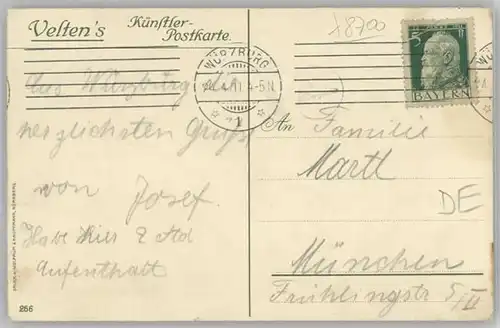 Velten's
Künstler-
Postkarte.
18700
5 5
BAYERN
WÜRZBURG
4-5 N.
1
Aus Würzburg die
herzlichsten Grüße
von Josef.
Habe hier 2 Std
Aufenthalt
An Familie
Martl
DE
München
Frühlingstr 5/III
256